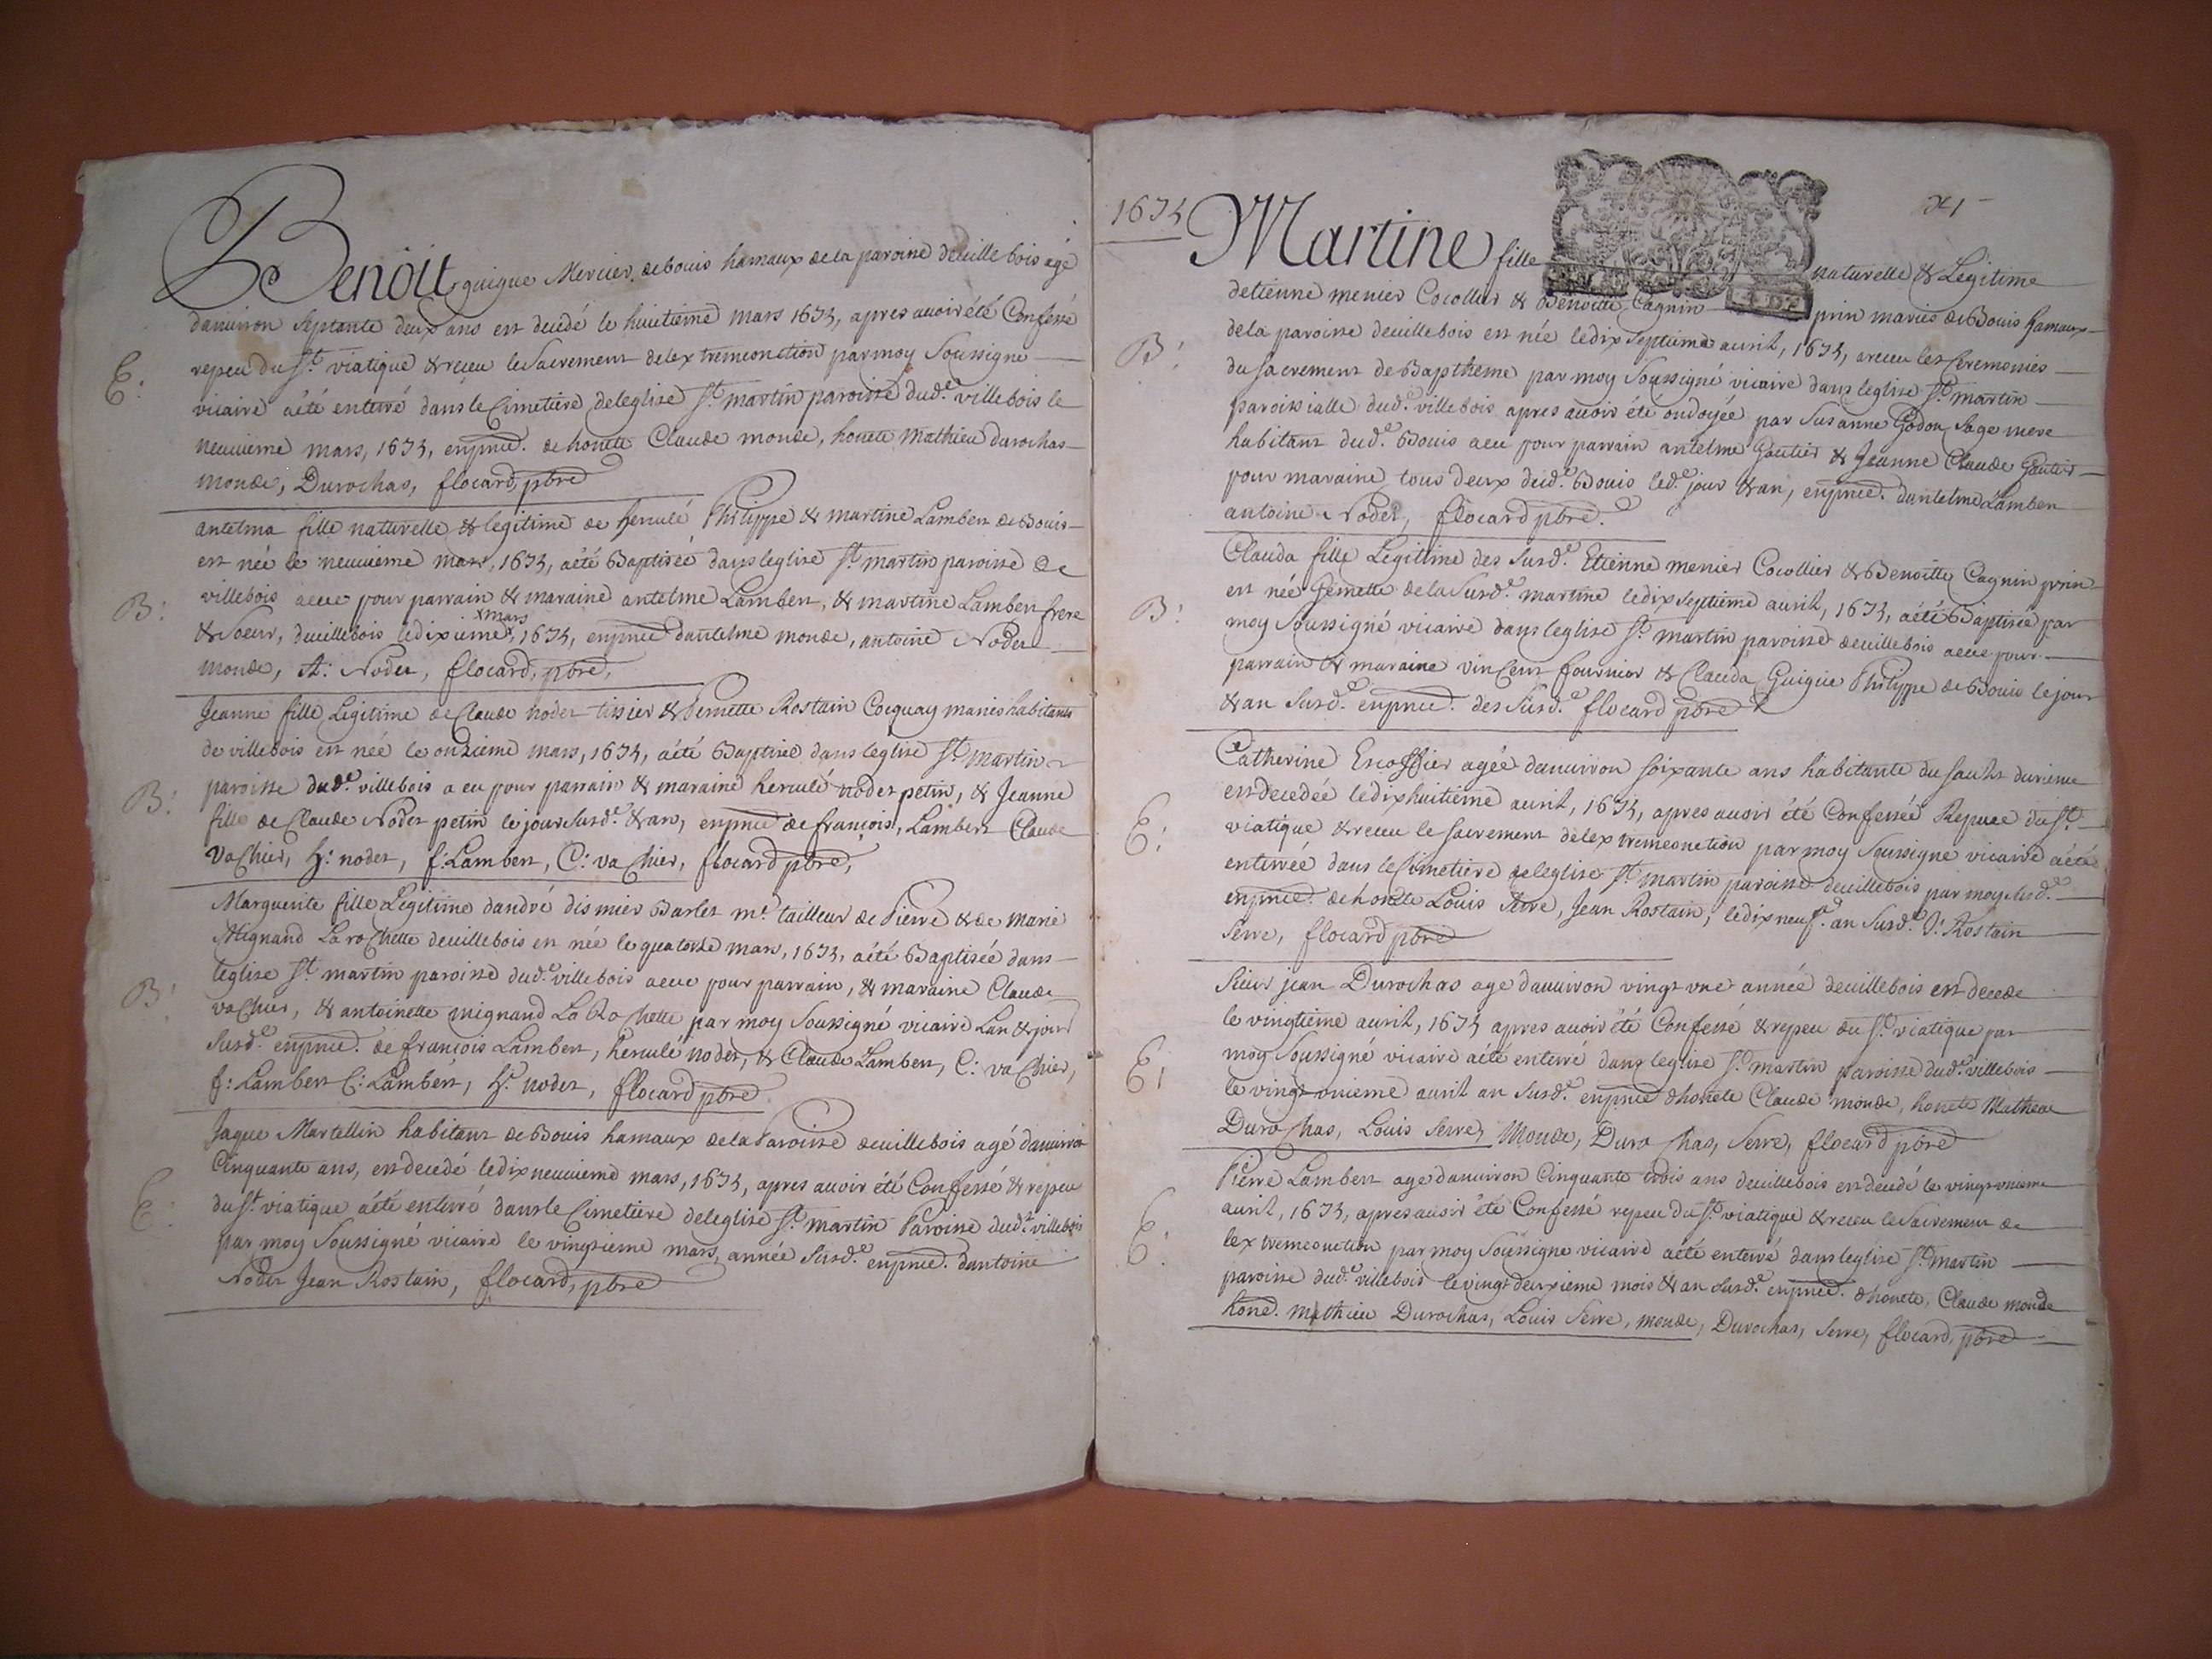 Benoit guigue Mercier de bouis hamaux de la paroisse deuillebois agé
danuiron septante deux ans est decedé le huictieme mars 1674, apres auoir été Confessé
E:
repeu du St. viatique & receu le Sacrement delextremeonction parmoy Soussigné
vicaire aété enterré dans le Cimetiere deleglise St. martin paroisse dude. villebois le
neuuieme mars, 1674, enpnce. de honete Claude monde, honete Mathieu durochas
monde, Durochas, flocard, pbre
antelma fille naturelle & legitime de herculé Philippe & martine Lambert de Bouis
est née le neuuieme mars, 1674, aété Baptisée dans leglise St. martin paroisse de
B:
villebois aeue pour parrain & maraine antelme Lambert, & martine Lambert frere
xmars
& Soeur, deuillebois ledixieme x, 1674, enpnce dantelme monde, antoine Nodet
monde, A: Nodet, flocard, pbre,
Jeanne fille Legitime de Claude nodet tissier & Pernette Rostain Cocquay mariés habitants
de villebois est née le onzieme mars, 1674, aété Baptisée dans leglise St. martin
B:
paroisse dude. villebois a eu pour parrain & maraine herculé nodet petin, & Jeanne
fille de Claude Nodet petin le jour Susde. & an, enpnce de françois, Lambert Claude
vaChier, h: nodet, f: Lambert, C: vaChier, flocard pbre,
Marguerite fille Legitime dandré dismier Barlet me. tailleur de Pierre & de Marie
Mignand LaroChette deuillebois est née le quatorze mars, 1674, aété Baptisée dans
B:
leglise St. martin paroisse dude. villebois aeue pour parrain, & maraine Claude
vaChier, & antoinette mignand LaRoChette par moy Soussigné vicaire Lan & jour
Susde. enpnce. de françois Lambert, herculé nodet, & Claude Lambert, C: vaChier,
f: Lambert C: Lambert, h: nodet, flocard pbre
Jaque Martellin habitant de Bouis hamaux delaParoisse deuillebois agé danuiron
Cinquante ans, est decedé ledixneuuieme mars, 1674, apres auoir été Confessé & repeu
E:
du St. viatique aété enterré dans le Cimetiere deleglise St. martin Paroisse dude. villebois
par moy Soussigné vicaire le vingtieme mars, année Susde. enpnce. dantoine
Nodet Jean Rostain, flocard, pbre
1674
Martine fille naturelle & Legitime
detienne menier Cocollier & Benoitte Cagnin prin mariés de Bouis hamaux
B:
dela paroisse deuillebois est née ledix septieme auril, 1674, areceu les Ceremonies
du sacrement de Baptheme par moy Soussigné vicaire dans leglise St. martin
paroissialle dude. villebois apres auoir été ondoyée par Susanne Godon Sage mere
habitant dude. Bouis aeu pour parrain antelme Gautier & Jeanne Claude Gautier
pour maraine tous deux dude. Bouis lede. jour & an, enpnce. dantelme Lambert
antoine Nodet, flocard pbre.
Clauda fille Legitime des Susde. Etienne menier Cocollier & Benoitte Cagnin prin
est née Gemette de la Susde. martine ledix septieme auril, 1674, aété Baptisée par
B:
moy Soussigné vicaire dans leglise St. martin paroisse deuillebois aeue pour
parrain & maraine vinCent fournier & Clauda Guigue Philippe de Bouis le jour
& an Susde. enpnce. des Susde. flocard pbre
Catherine Escoffier agée danuiron soixante ans habitante du
est decedée ledixhuitieme auril, 1674, apres auoir été Confessée Repuee du St.
E:
viatique & receu le sacrement delextremeonction par moy Soussigné vicaire aété
enterrée dans le Cimetiere deleglise St. martin paroisse deuillebois par moy Susde.
enpnce. de honete Louis Serre, Jean Rostain, ledixneufe. an Susde. J: Rostain
Serre, flocard pbre
Sieur jean Durochas agé danuiron vingt vne année deuillebois est decedé
le vingtieme auril, 1674 apres auoir été Confessé & repeu du St. viatique par
E:
moy Soussigné vicaire aété enterré dans leglise St. martin paroisse dude. villebois
le vingt vnieme auril an Susde. enpnce dhonete Claude monde, honete Mathieu
DuroChas, Louis Serre, Monde, DuroChas, Serre, flocard pbre
Pierre Lambert agé danuiron Cinquante trois ans deuillebois est decedé le vingtvnieme
auril, 1674, apres auoir été Confessé repeu du St. viatique & receu le Sacrement de
E:
lextremeonction par moy Soussigné vicaire aété enterré dans leglise St. martin
paroisse dude. villebois le vingt deuxieme mois & an Susde. enpnce. dhonete, Claude monde
hone. mathieu Durochas, Louis Serre, monde, Durochas, Serre, flocard, pbre